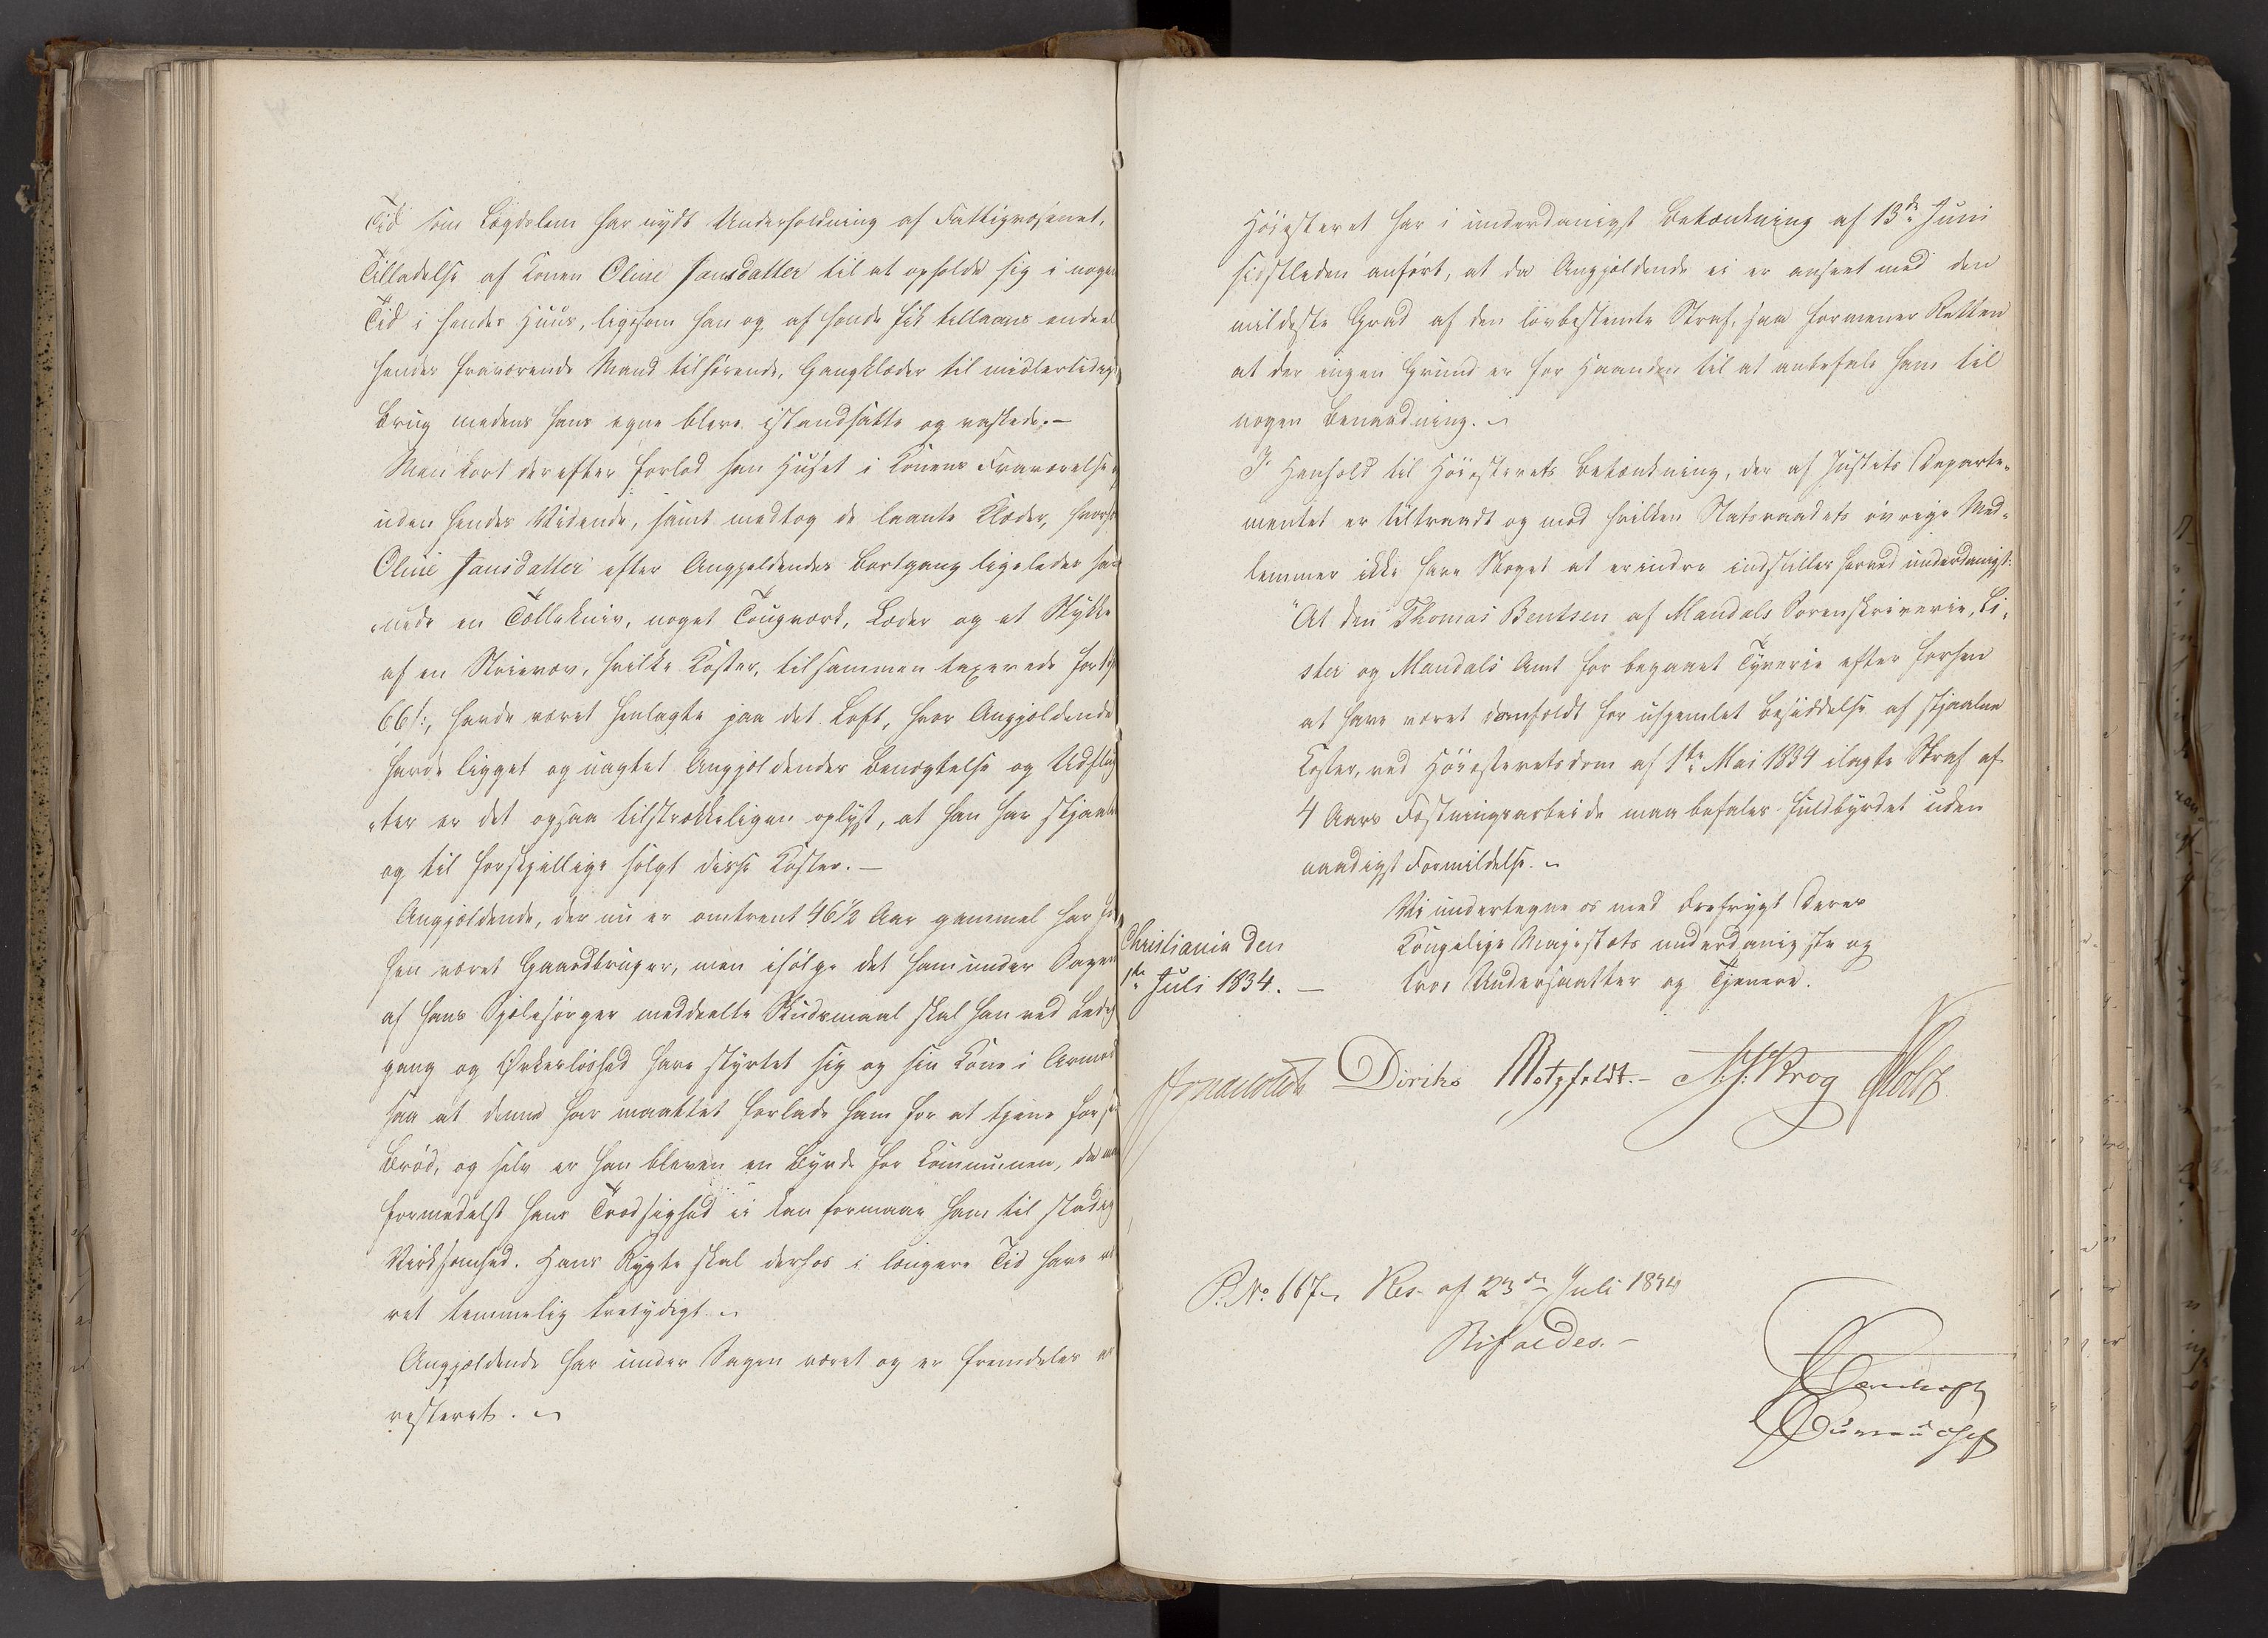 Tid som Lægdslem har nydt Underholdning af Fattigvæsenet,
Tilladelse af Konen Oline Jansdatter til at opholde sig i nogen
Tid i hendes Huus, ligesom han og af hende fik tillaans endeel
hendes fraværende Mand tilhørende, Gangklæder til midlertidig
Brug medens hans egne bleve istandsatte og vaskede. -
Men kort derefter forlod han Huset i Konens Fraværelse og
uden hendes Vidende, samt medtog de laante Klæder, hvorhos
Oline Jansdatter efter Angjeldendes Bortgang ligeledes sav-
nede en Tollekniv, noget Tougværk, Læder og et Stykke
af en Strievæv, hvilke Koster, tilsammen taxerede for
66 s:, havde været henlagte paa det Loft, hvor Angjældende
havde ligget og uagtet Angjældendes Benægtelse og Udflug
ter er det ogsaa tilstrækkeligen oplyst, at han har stjaalet
og til forskjellige solgt disse Koster. -
Angjældende, der nu er omtrent 46 1/2 Aar gammel har
hen været Gaardbruger, men ifølge det ham under Sagen
af hans Sjælesørger meddeelte Skudsmaal skal han ved Ledig
gang og Ørkesløshed have styrtet sig og sin Kone i Armod
saa at denne har maattet forlade ham for at tjene for sit
Brød, og selv er han bleven en Byrde for Kommunen, da man
formedelst hans Trodsighed ei kan formaae ham til stadig
Virksomhed. Hans Rygte skal derhos i længere Tid have væ
ret temmelig tvetydigt.
Angjældende har under Sagen været og er fremdeles ar
resteret.
Høiesteret har i underdanigst Betænkning af 13de Juni
sidstleden anført, at da Angjældende ei er anseet med den
mildeste Grad af den lovbestemte Straf, saa formener Retten
at der ingen Grund er for Haanden til at anbefale ham til
nogen Benaadning.
I Henhold til Høiesterets Betænkning, der af Justits Departe-
mentet er tiltraadt og mod hvilken Statsraadets øvrige Med-
lemmer ikke have Noget at erindre indstilles herved underdanigst:
"At den Thomas Bentsen af Mandals Sorenskriverie, Li-
ster og Mandals Amt for begaaet Tyverie efter forhen
at have været domfældt for uhjemlet Besiddelse af stjaalne
Koster, ved Høiesteretsdom af 1ste Mai 1834 ilagte Straf af
4 Aars Fæstningsarbeide maa befales fuldbyrdet uden
naadigst Formildelse.
Vi undertegne os med Ærefrygt Deres
Christiania den
Kongelige Majestæts underdanigste og
1ste Juli 1834. -
troe Undersaatter og Tjenere.
Diriks Motzfeldt. - Krog Holst
P. No. 667. Res. af 23de Juli 1834
Bifaldes. -